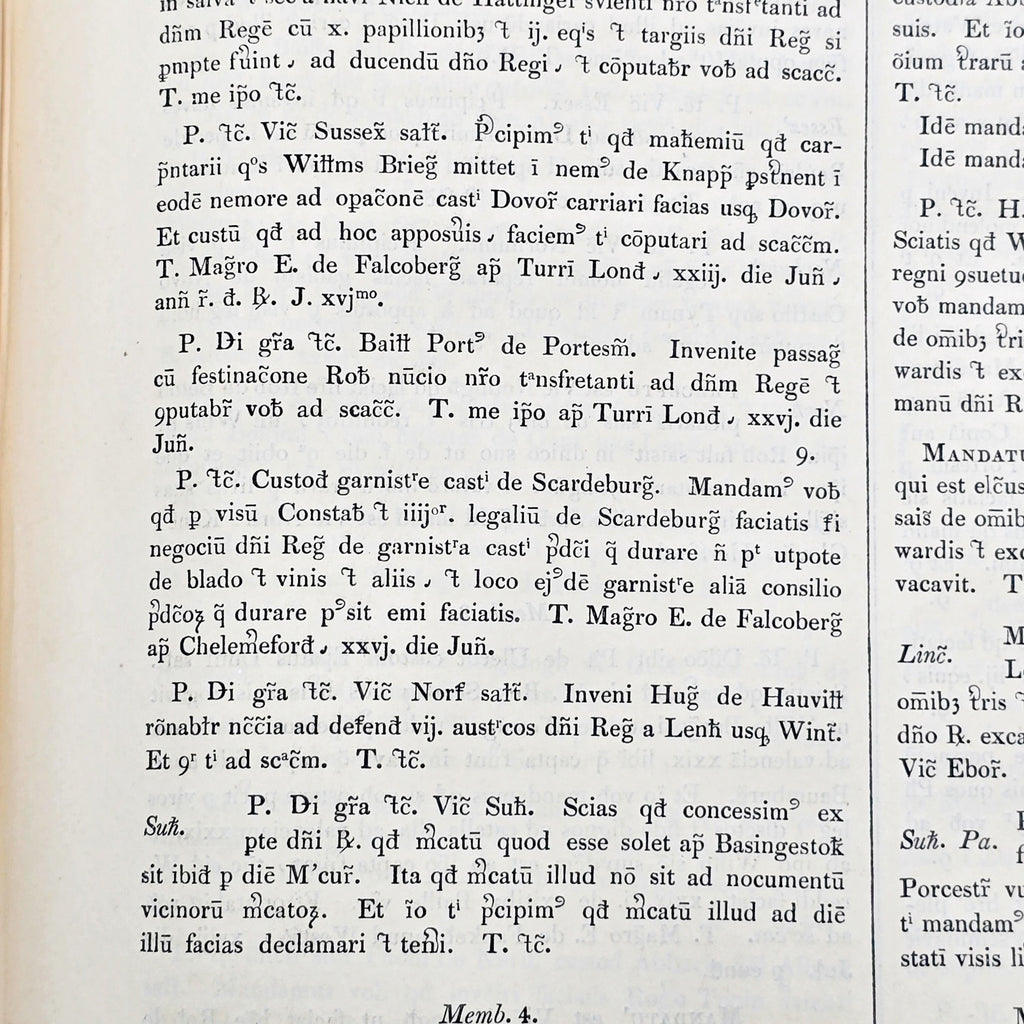 dñm Regē cū x. papillionibȝ ⁊ ij. eqⁱs ⁊ targiis dñi Reg̃ si
ꝑmpte fůint, ad ducendū dño Regi, ⁊ cōputabr̃ vob̵ ad scacc̃.
T. me ip̃o ⁊c̃.
P. ⁊c̃. Vic̃ Sussex̃ sal̵t̃. P̉cipimꝰ tⁱ qđ mah̵emiū qđ car-
p̃ntarii qᵒs Wil̵l̵ms Brieg̃ mittet ī nemꝰ de Knapp̃ ꝑst̉nent ī
eodē nemore ad opac̃onē castⁱ Dovor̃ carriari facias usqꝫ Dovor̃.
Et custū qđ ad hoc apposůis, faciemꝰ tⁱ cōputari ad scacc̃m.
T. Mag̃ro E. de Falcoberg̃ ap̃ Turrī Lonđ, xxiij. die Juñ,
anñ r̃. đ. ℞. J. xvjᵐᵒ.
P. Di gr̃a ⁊c̃. Bail̵l̵ Portꝰ de Portesm̃. Invenite passag̃
cū festinac̃one Rob̵ nūcio nr̃o tᵃnsfretanti ad dñm Regē ⁊
ꝯputabr̃ vob̵ ad scacc̃. T. me ip̃o ap̃ Turrī Lonđ, xxvj. die
Juñ. 9.
P. ⁊c̃. Custođ garnistʳe castⁱ de Scardeburg̃. Mandamꝰ vob̵
qđ ꝑ visū Constab̵ ⁊ iiijᵒʳ. legaliū de Scardeburg̃ faciatis fi
negociū dñi Reg̃ de garnistʳa castⁱ p̉dc̃i q̃ durare ñ pᵗ utpote
de blado ⁊ vinis ⁊ aliis, ⁊ loco ejꝰdē garnistʳe aliā consilio
p̉dc̃oꝝ q̃ durare pꝰsit emi faciatis. T. Mag̃ro E. de Falcoberg̃
ap̃ Chelem̉eforđ, xxvj. die Juñ.
P. Di gr̃a ⁊c̃. Vic̃ Norf sal̵t̃. Inveni Hug̃ de Hauvil̵l̵
rōnabl̵r nc̃c̃ia ad defenđ vij. austʳcos dñi Reg̃ a Lenh̵ usqꝫ Wint̃.
Et ꝯʳ tⁱ ad scᵃc̃m. T. ⁊c̃.
Suh̵.
P. Di gr̃a ⁊c̃. Vic̃ Suh̵. Scias qđ concessimꝰ ex
pte dñi ℞. qđ m̉catū quod esse solet ap̃ Basingestok̵
sit ibiđ ꝑ diē M’cur̃. Ita qđ m̉catū illud nō sit ad nocumentū
vicinorū m̉catoꝝ. Et ĩo tⁱ p̉cipimꝰ qđ m̉catū illud ad diē
illū facias declamari ⁊ ten̉i. T. ⁊c̃.
Memb. 4.
suis. Et ĩo
T. ⁊c̃.
Idē manda
Idē manda
P. ⁊c̃. H.
Sciatis qđ W
regni ꝯsuetu
vob̵ mandam
de om̃ibȝ t̉ri
wardis ⁊ ex
manū dñi R
MANDATU
qui est elc̃us
sais̃ de om̃ib
wardis ⁊ exc
vacavit. T
Linc̃.
om̃ibȝ t̉ris
dño ℞. exca
Vic̃ Ebor̃.
Suh̵. Pa.
Porcestr̃ vu
tⁱ mandamꝰ
statī visis li